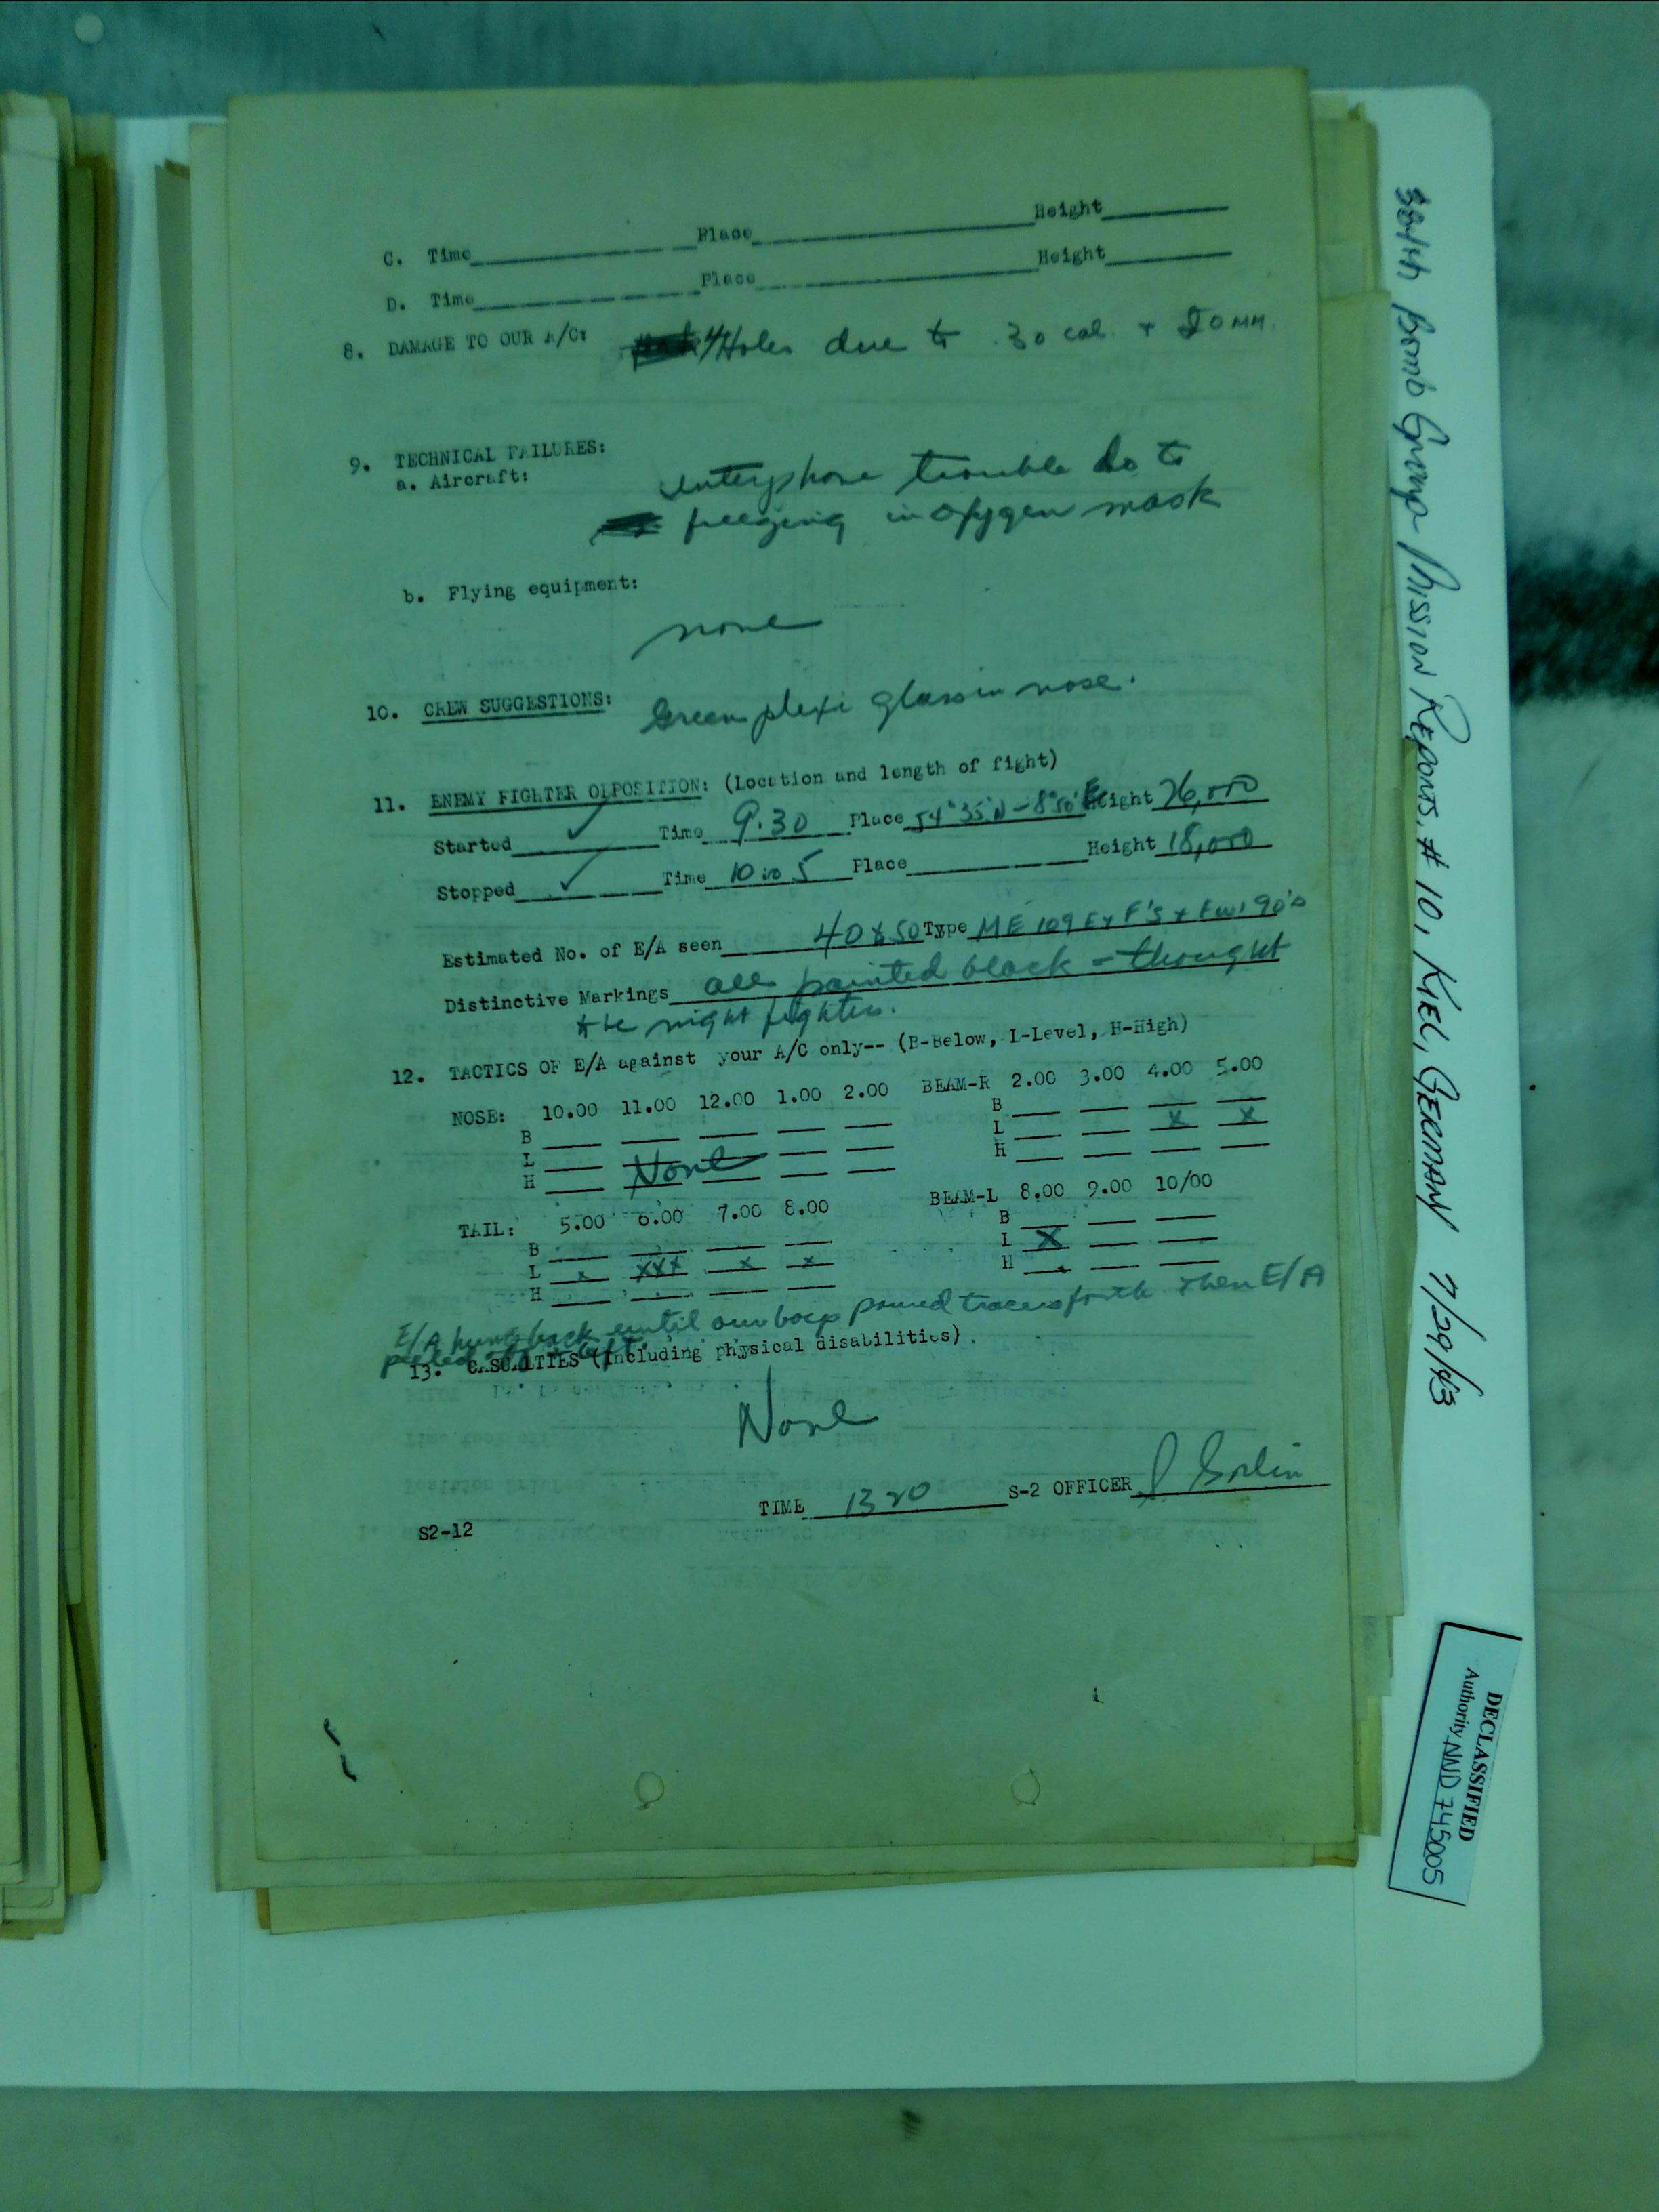 C. Time Place Height
D. Time Place Height
8. DAMAGE TO OUR A/C: Holes due to .30 cal. + 20 MM.
9. TECHNICAL FAILURES:
a. Aircraft: interphone trouble do to
freezing in oxygen mask
b. Flying equipment:
none
10. CREW SUGGESTIONS: Green plexi glass in nose.
11. ENEMY FIGHTER OPPOSITION: (Location and length of fight)
Started ✓ Time 9.30 Place 54°35'N - 8°50'E Height 26,000
Stopped ✓ Time Place Height 18,000
Estimated No. of E/A seen 40 to 50 Type ME 109 E + F's + FW 190's
Distinctive Markings all painted black - thought
to be night fighters.
12. TACTICS OF E/A against your A/C only-- (B-Below, L-Level, H-High)
NOSE: 10.00 11.00 12.00 1.00 2.00 BEAM-R 2.00 3.00 4.00 5.00
B B
L L x x
H None H
TAIL: 5.00 6.00 7.00 8.00 BEAM-L 8.00 9.00 10/00
B B
L x xxx x x L X
H H
E/A hung back until our boys poured tracers forth then E/A
peeled off to left.
13. CASUALTIES (Including physical disabilities).
None
TIME 1320 S-2 OFFICER
S2-12
384th Bomb Group Mission Reports. # 10, KIEL, GERMAN 7/29/43
DECLASSIFIED
Authority NND 745005